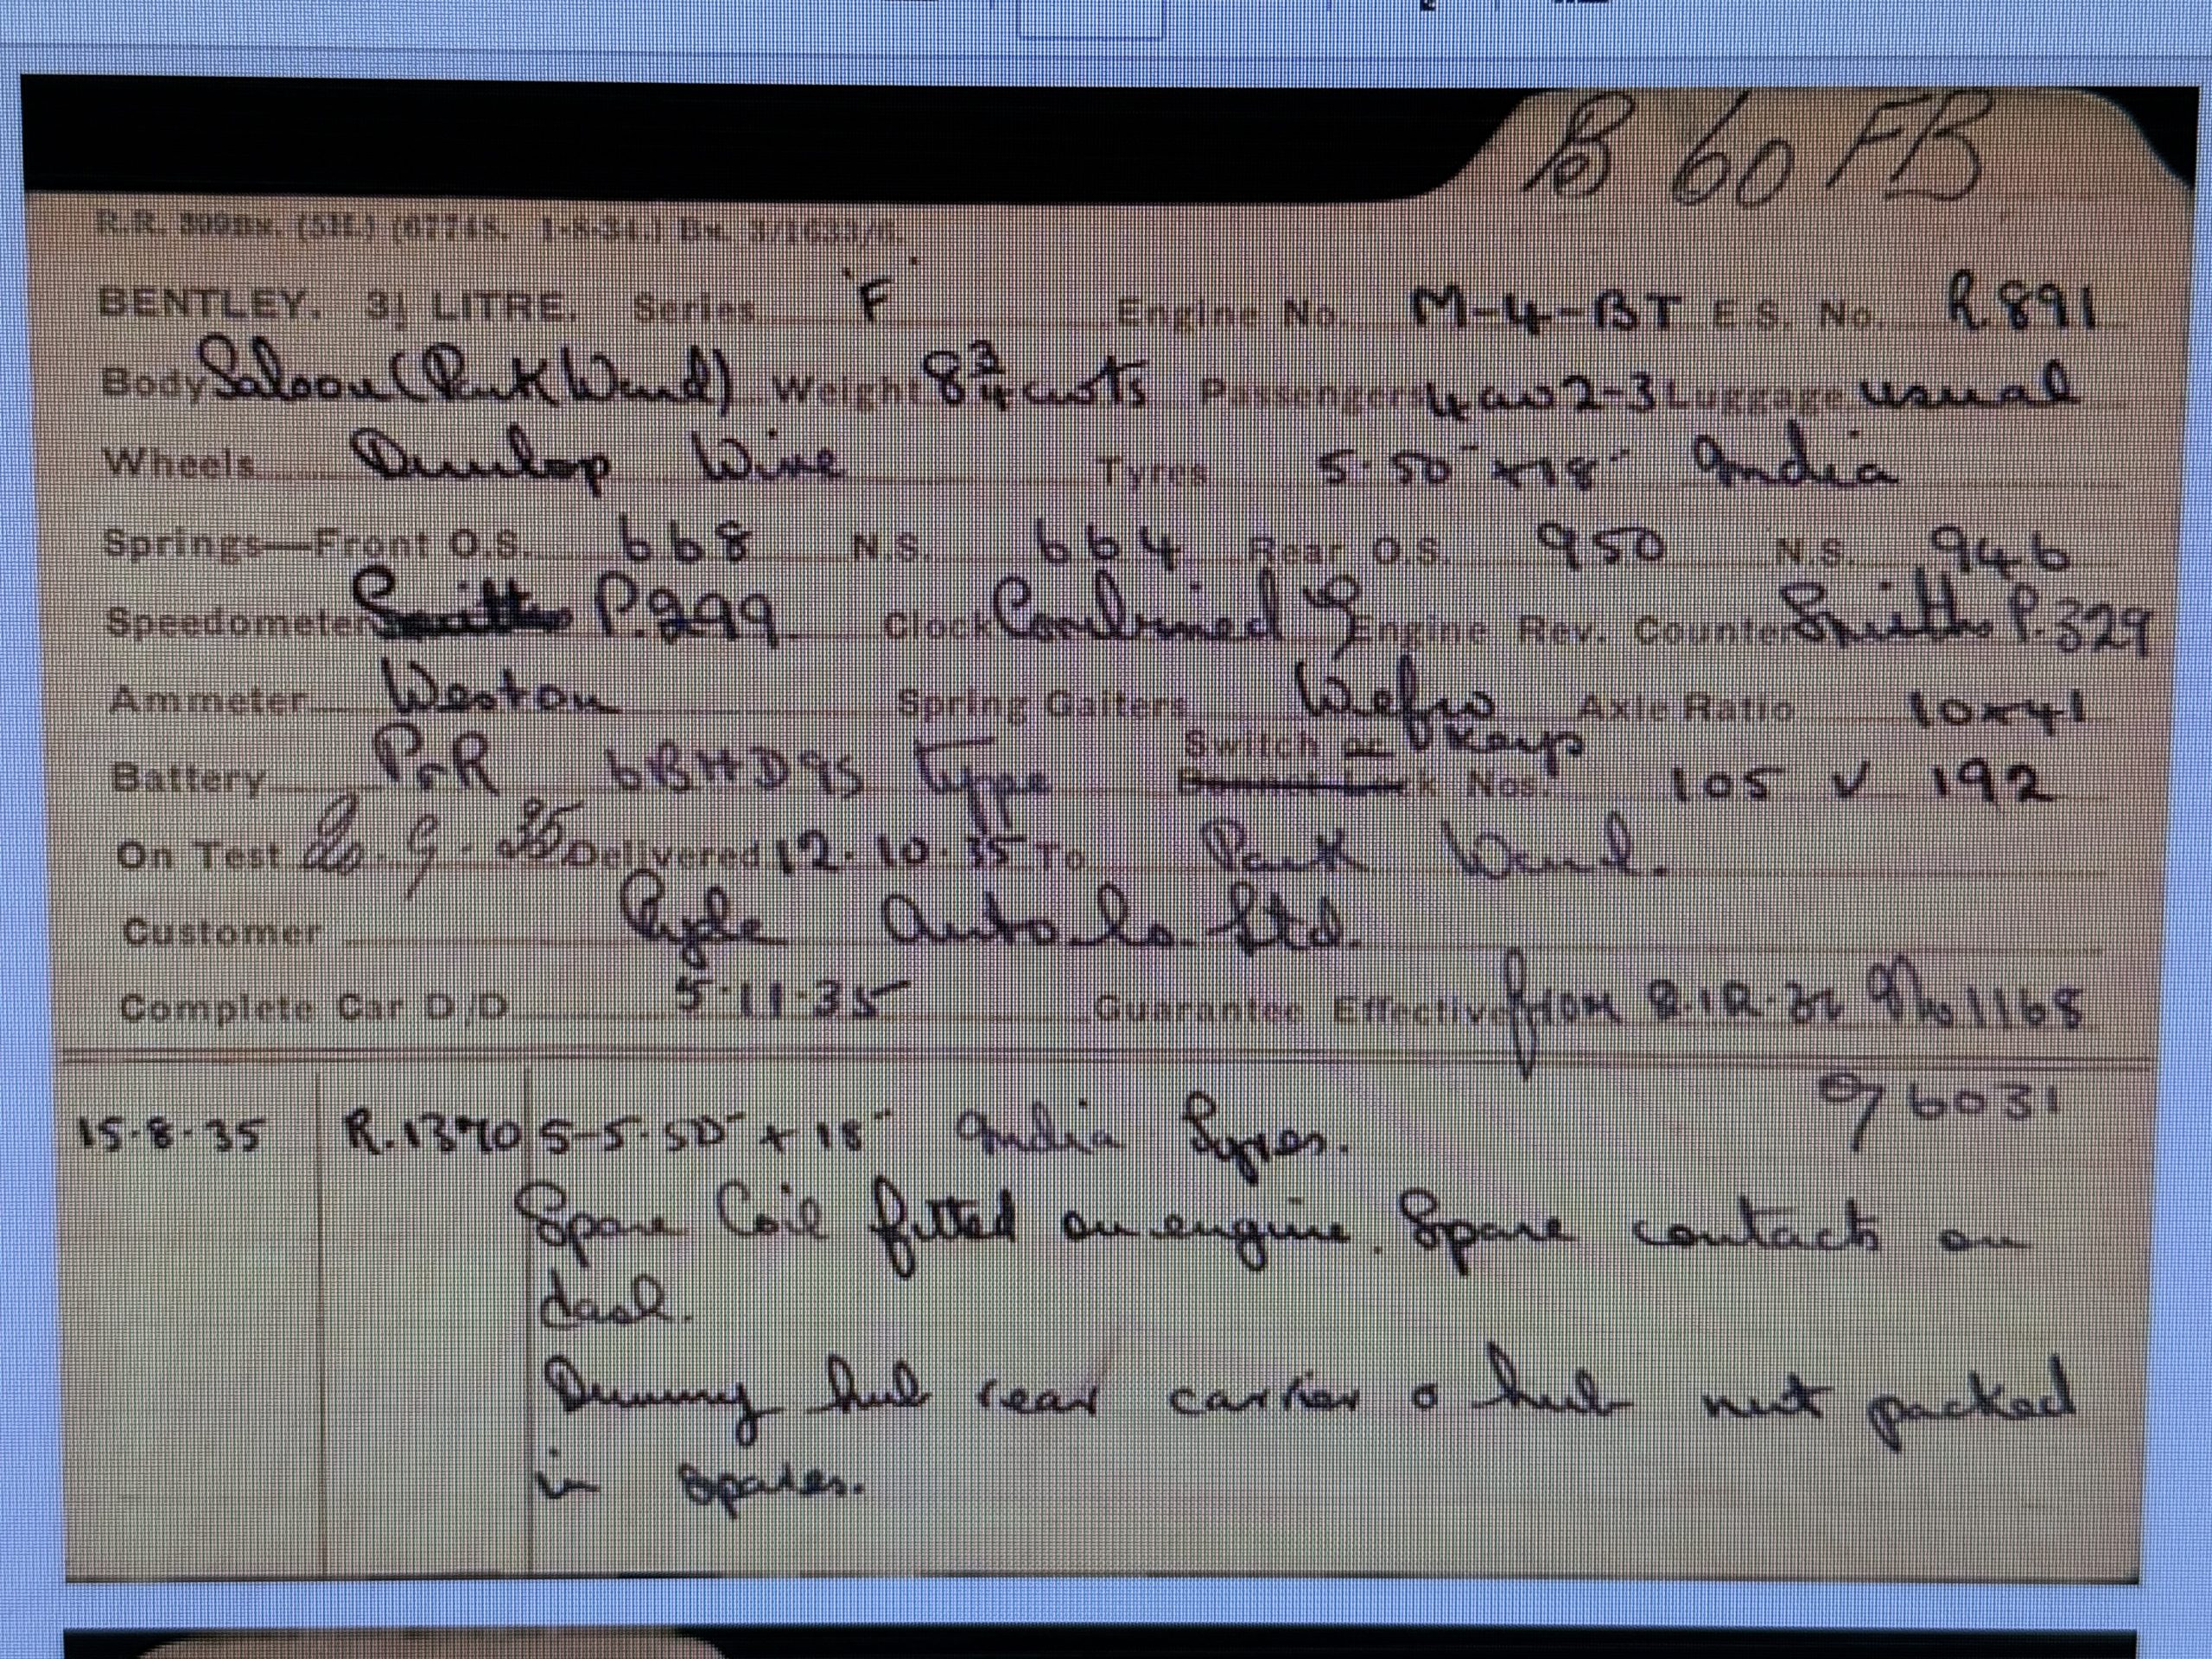 B 60 FB
R.R. 309BX. (5H.) (67748. 1-8-34.) BM. 3/1633/6.
BENTLEY. 3½ LITRE. Series 'F' Engine No. M-4-BT E.S. No. R.891
Body Saloon (Park Ward) Weight 8¾ cwts Passengers 4 aw 2-3 Luggage usual
Wheels Dunlop Wire Tyres 5.50" x 18" India
Springs—Front O.S. 668 N.S. 664 Rear O.S. 950 N.S. 946
Speedometer Smiths P.299 Clock Combined Engine Rev. Counter Smiths P.329
Ammeter Weston Spring Gaiters Wefco Axle Ratio 10x41
Battery P&R 6BHD9S Type Switch keys Nos. 105 v 192
On Test 9.35 Delivered 12.10.35 To Park Ward.
Customer Ryde Auto Co. Ltd.
Complete Car D/D 5.11.35 Guarantee Effective from No 1168
96031
15.8.35 R.1370 5-5.50" x 18" India Tyres.
Spare Coil fitted on engine. Spare contacts on
dash.
Dummy hub rear carrier & hub nut packed
in spares.